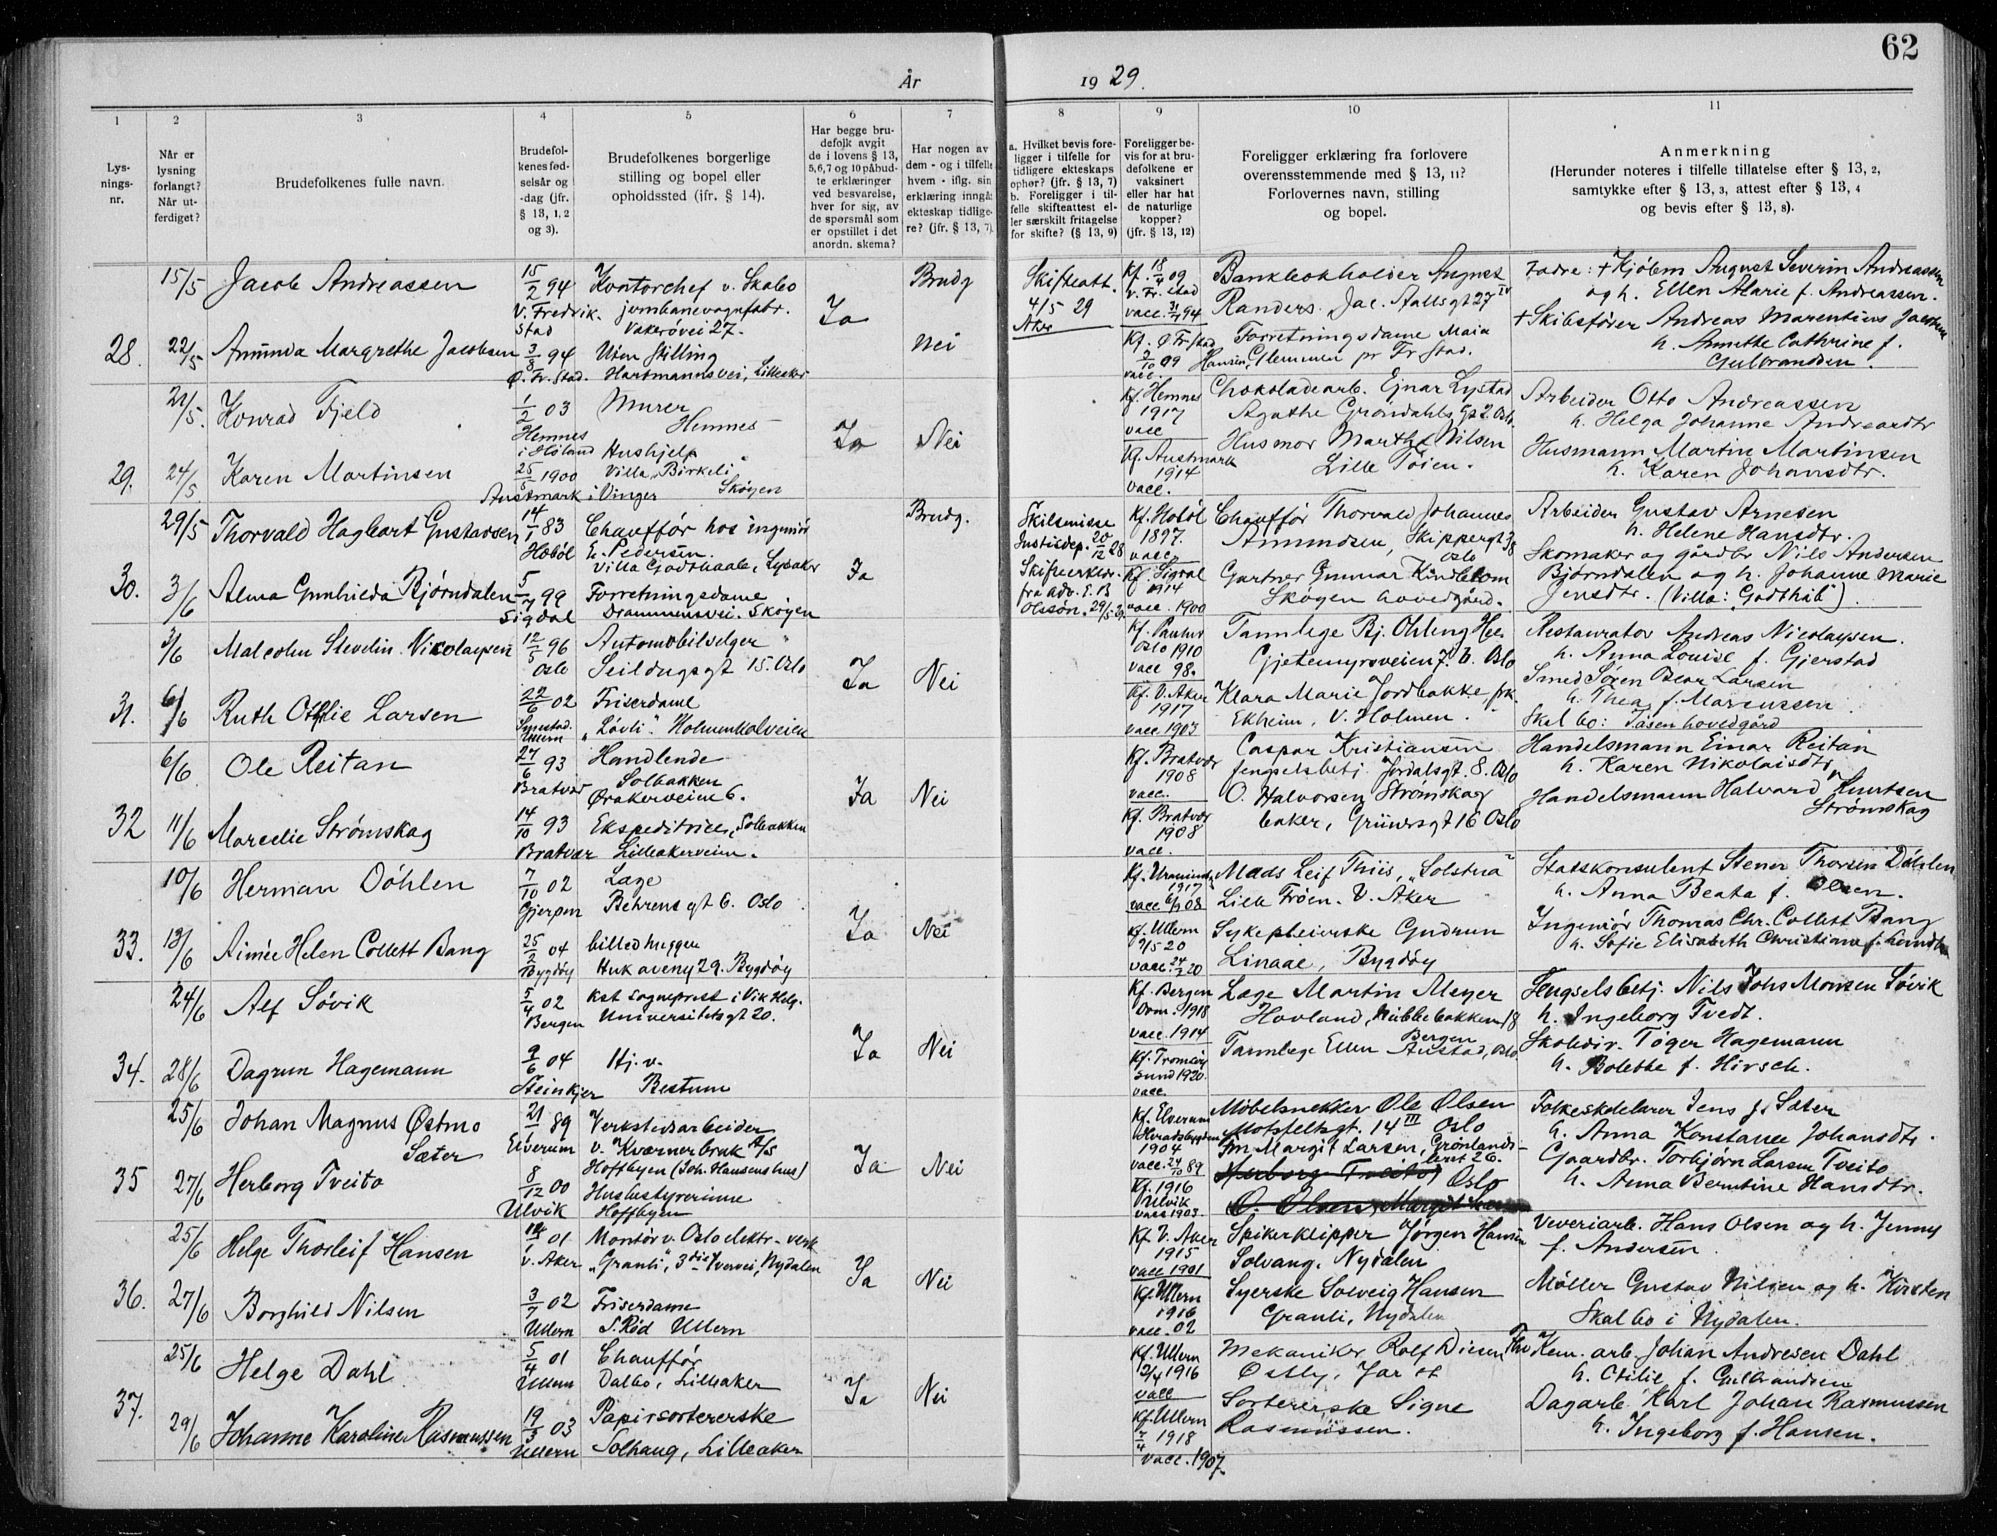 62
År 1929.
1 2 3 4 5 6 7 8 9 10 11
Lys-
nings-
nr.
Når er
lysning
forlangt?
Når ut-
ferdiget?
Brudefolkenes fulle navn.
Brudefol-
kenes fød-
selsår og
-dag (jfr.
§ 13, 1, 2
og 3).
Brudefolkenes borgerlige
stilling og bopel eller
opholdssted (jfr. § 14).
Har begge bru-
defolk avgit
de i lovens § 13,
5,6,7 og 10 påbud-
te erklæringer
ved besvarelse,
hver for sig, av
de spørsmål som
er opstillet i det
anordn. skema?
Har nogen av
dem - og i tilfelle
hvem - iflg. sin
erklæring inngåt
ekteskap tidlige-
re? (jfr. § 13, 7).
a. Hvilket bevis fore-
ligger i tilfelle for
tidligere ekteskaps
ophør? (jfr. § 13, 7)
b. Foreligger i til-
felle skifteattest el-
ler særskilt fritagelse
for skifte? (§ 13, 9)
Foreligger be-
vis for at bru-
defolkene er
vaksinert
eller har hat
de naturlige
kopper?
(jfr. § 13, 12)
Foreligger erklæring fra forlovere
overensstemmende med § 13, 11?
Forlovernes navn, stilling
og bopel.
Anmerkning
(Herunder noteres i tilfelle tillatelse efter § 13, 2,
samtykke efter § 13, 3, attest efter § 13, 4
og bevis efter § 13, 8).
28. 15/5 Jacob Andreassen
15/2 94
V. Fredrik-
stad
Kontorchef v. Skabo
jernbanevognfabr.
Vakerøvei 27.
Ja
Brudg
Skifteatt.
4/5 29
Aker
Kf. 18/4 09
v. Fr.stad
vacc. 3/7 94
Bankbokholder August
Randers. Jac. Aallsgt 27 IV
Fadre: + Kjøbm August Severin Andreassen
og h. Ellen Marie f. Andreassen.
22/5 Amunda Margrethe Jacobsen
3/8 94
Ø. Fr. Stad.
Uten Stilling
Hartmannsvei, Lilleaker
Nei
Kf. Ø Fr stad
2/10 09
vacc.
Forretningsdame Maia
Hansen, Glemmen pr Fr Stad.
+ Skibsfører Andreas Marentius Jacobsen
h. Annette Cathrine f.
Gulbrandsen.
29. 21/5. Konrad Fjeld
1/2 03
Hemnes
i Høland
Murer
Hemnes
Ja Nei
Kf. Hemnes
1917
vacc
Chokoladearb. Ejnar Lystad
Agathe Grøndahls Gt 2. Oslo
Arbeider Otto Andreassen
h. Helga Johanne Andreasdtr
24/5. Karen Martinsen
25/5 1900
Austmark i Vinger
Hushjelp
Villa "Birkeli"
Skøyen
Kf. Austmark
1914
vacc.
Husmor Martha Nilsen
Lille Tøien.
Husmann Martin Martinsen
h. Karen Johansdtr.
30. 29/5 Thorvald Hagbart Gustavsen
14/1 83
Hobøl
Chauffør hos ingeniør
E. Pedersen.
Villa Godthaab, Lysaker
Ja
Brudg.
Skilsmisse
Justisdep. 20/12 28
Skifteerklær.
fra adv. E. B.
Olsson. 29/5 29.
Kf. Hobøl
1897.
vacc.
Chauffør Thorvald Johannes
Amundsen, Skippergt 38
Oslo
Arbeider Gustav Arnesen
h. Helene Hansdtr.
3/6 Alma Gunhilda Bjørndalen
5/7 99
Sigdal
Forretningsdame
Drammensvei. Skøyen
Kf. Sigdal
1914
vacc. 1900
Gartner Gunnar Kindblom
Skøyen hovedgård.
Skomaker og gårdbr Nils Andersen
Bjørndalen og h. Johanne Marie
Jensdtr. (Villa: "Godthåb").
31. 3/6 Malcolm Stevelin Nicolaysen
12/5 96
Oslo
Automobilselger
Seildugsgt 15. Oslo
Ja Nei
Kf. Paulus
Oslo 1910
vacc 98.
Tannlege Bj. Ohling Hee
Gjetemyrsveien 7. b. Oslo
Restauratør Andreas Nicolaysen.
h. Anna Louise f. Gjerstad
6/6 Ruth Ottilie Larsen
22/6 02
Ullern
Friserdame
"Løvli". Holmenkolveien
Kf. V. Aker
1917
vacc. 1903
Klara Marie Jordbakke, frk.
Ekheim, V. Holmen.
Smed Søren Bear Larsen
h. Thea f. Marcussen.
Skal bo: Tåsen hovedgård
32 6/6. Ole Reitan
27/6 93
Bratvær
Handlende
Solbakken
Ørakerveien 6.
Ja Nei
Kf. Bratvær
1908
vacc.
Caspar Kristiansen
fengselsbetj. Jordalsgt. 8. Oslo
Handelsmann Einar Reitan
h. Karen Nikolaisdtr
11/6 Marselie Strømskag
14/10 93
Bratvær
Ekspeditrice, Solbakken
Lilleakerveien.
Kf. Bratvær
1908
vacc.
O. Halvorsen Strømskag
baker, Grünersgt 16 Oslo
Handelsmann Halvard Knutsen
Strømskag
33. 10/6 Herman Döhlen
7/10 02
Gjerpen
Læge
Behrens gt 6. Oslo
Ja Nei
1917
vacc 6/9 08
Mads Leif Thiis, "Solstua"
Lille Frøen. V. Aker
Statskonsulent Stener Thorsen Döhlen
h. Anna Beata f. Olsen.
13/6 Aimée Helen Collett Bang
25/2 04
Bygdøy
billedhugger
Huk aveny 29. Bygdøy
Kf. Ullern
9/5 20
vacc. 24/2 20
Sykepleierske Gudrun
Linaae, Bygdøy
Ingeniør Thomas Chr. Collett Bang
h. Sofie Elisabeth Christiane f. Lundh
34. 24/6 Alf Sövik
5/4 02
Bergen
kst sogneprest i Vik Helg.
Universitetsgt 20.
Ja Nei
Kf. Bergen
Dom. 1918
vacc. 1914
Læge Martin Meyer
Hovland, Nubbebakken 18
Bergen
Fengselsbetj. Nils Johs Monsen Sövik
h. Ingeborg Tvedt.
28/6 Dagrun Hagemann
9/6 04
Steinkjer
Hj. v.
Bestum
Kf. Tromøy
sund 1920.
vacc.
Tannlege Ellen Austad, Oslo
Skoledir. Töger Hagemann
h. Bolette f. Hirsch.
35 25/6 Johan Magnus Østmo
Sæter
21/ 89
Elverum
Verkstedsarbeider
v. Kværnerbruk A/S
Hoffbyen (Joh. Hansens hus)
Ja Nei
Kf. Elverum
Heradsbygden
1904
vacc. 24/10 89
Møbelsnekker Ole Olsen
Motzfeltsgt. 14 III Oslo
Folkeskolelærer Jens J. Sæter
h. Anna Konstanse Johansdtr.
27/6 Herborg Tveito
8/12 00
Ulvik
Husbestyrerinne
Hoffbyen
Kf. 1916
Ulvik
vacc 1903.
Fru Margit Larsen, Grønlands-
leret 26.
Herborg Tveito Oslo
O. Olsen, Margit Larsen
Gaardbr. Torbjørn Larsen Tveito
h. Anna Berntine Hansdtr.
36. 25/6 Helge Thorleif Hansen
01
V. Aker
Montør v. Oslo elektr. verk
"Granli", 3die Tvervei, Nydalen
Ja Nei
Kf V. Aker
1915
vacc 1901
Spikerklipper Jørgen Hansen
Solvang, Nydalen
Veveriarb. Hans Olsen og h. Jenny
f. Andersen.
27/6 Borghild Nilsen
3/7 02
Ullern
Friserdame
S. Rød Ullern
Kf. Ullern
1916
vacc. 02
Syerske Solveig Hansen
Granli, Nydalen
Møller Gustav Nilsen og h. Kirsten
Skal bo i Nydalen.
37. 25/6 Helge Dahl
5/4 01
Ullern
Chauffør
Dalbo, Lilleaker
Ja Nei
Kf. Ullern
2/4 1916
vacc
Mekaniker Rolf Diesen Thv
Østby, Jar st
Kem. arb. Johan Andresen Dahl
h. Otilie f. Gulbrandsen
29/6 Johanne Karoline Rasmussen
19/3 03
Ullern
Papirsortererske
Solhaug, Lilleaker
Kf. Ullern
7/4 1918
vacc. 1907.
Sortererske Signe
Rasmussen.
Dagarb. Karl Johan Rasmussen
h. Ingeborg f. Hansen.